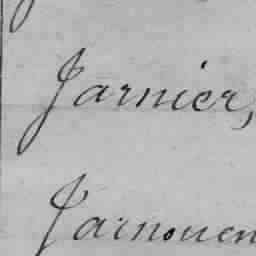 Jarnier,
Jarnouen